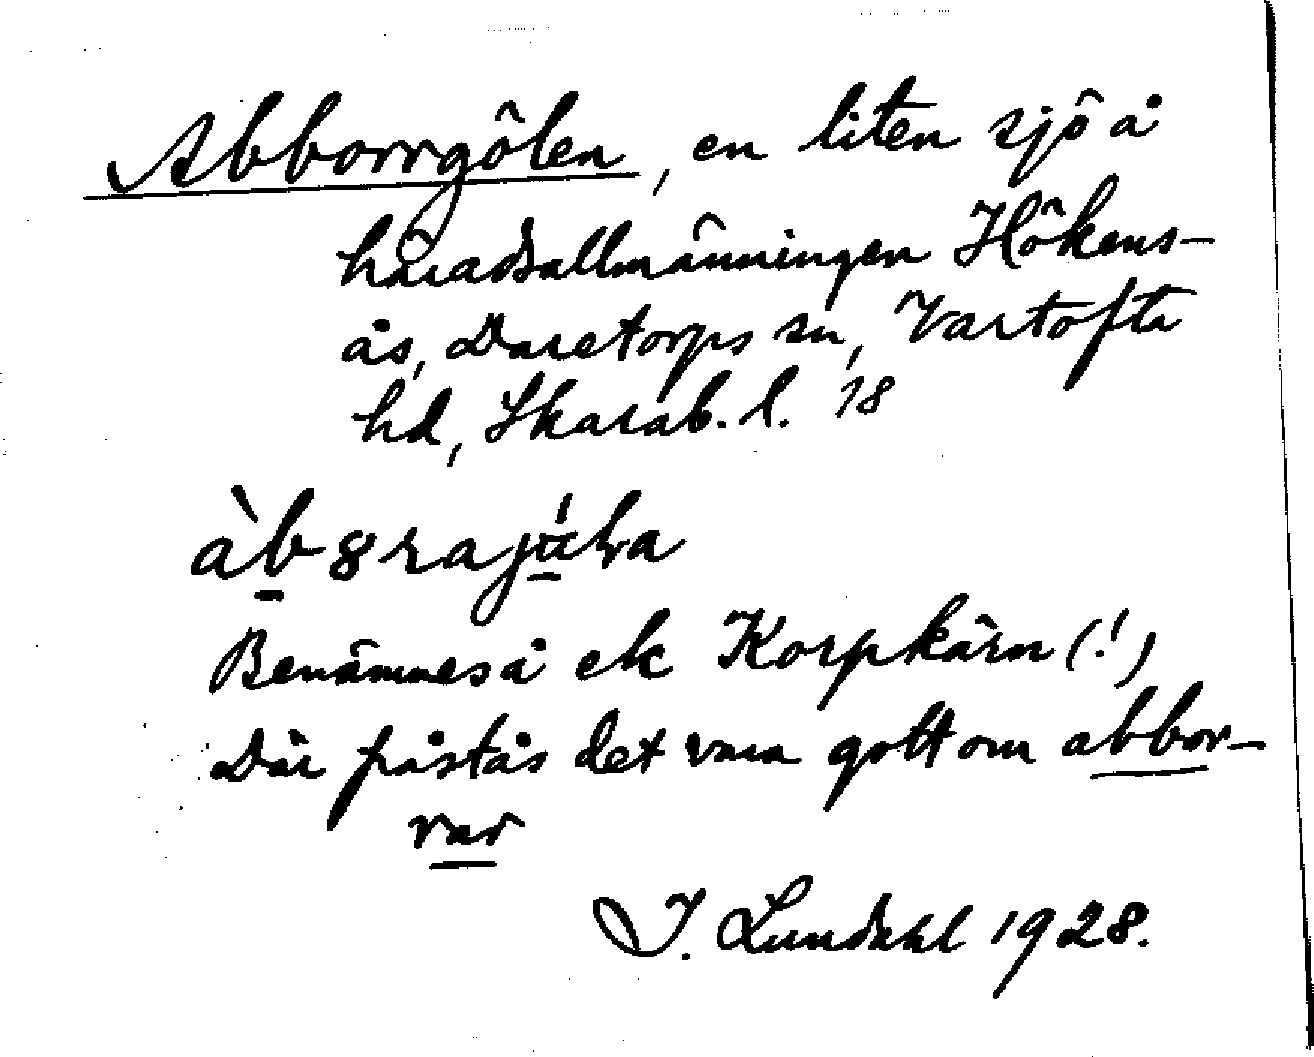 Abborrgölen, en liten sjö å
häradsallmänningen Hökens-
ås, Daretorps sn, Vartofta
hd, Skarab. l. 18
Benämnes å ek Korpkärn (!)
Där påstås det vara gott om abbor-
rar
I. Lundahl 1928.